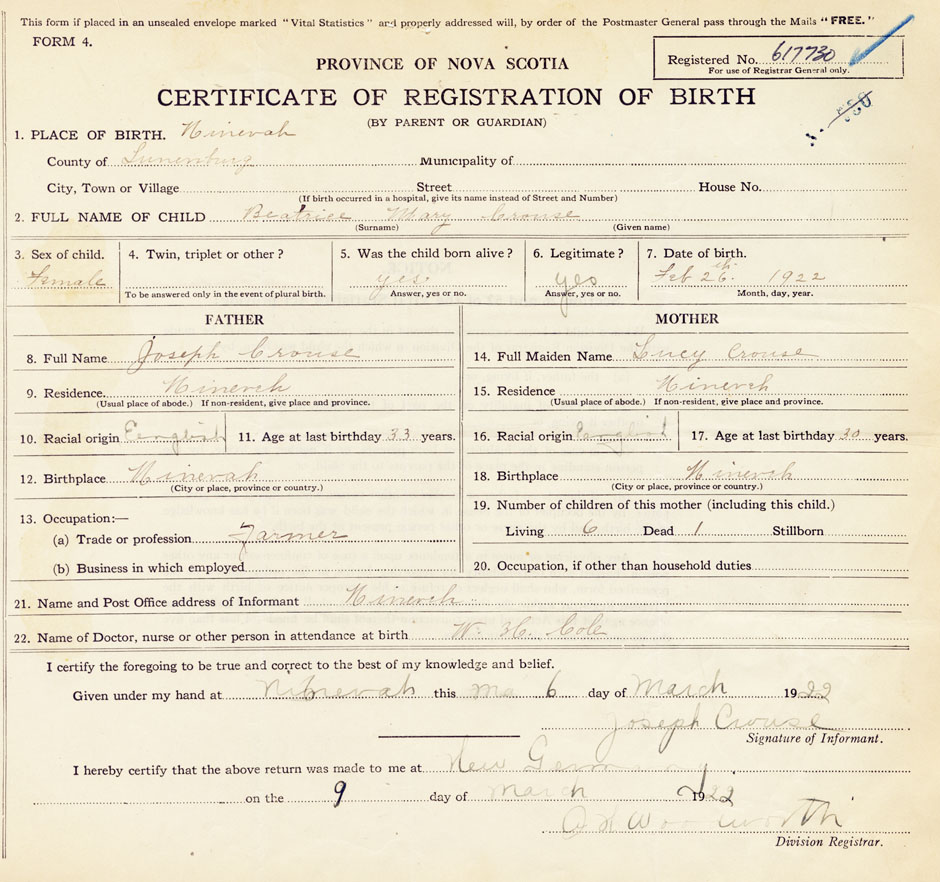 This form if placed in an unsealed envelope marked "Vital Statistics" and properly addressed will, by order of the Postmaster General pass through the Mails "FREE."
FORM 4.
Registered No. 617730
For use of Registrar General only.
PROVINCE OF NOVA SCOTIA
CERTIFICATE OF REGISTRATION OF BIRTH
(BY PARENT OR GUARDIAN)
1. PLACE OF BIRTH. Ninevah
County of Lunenburg Municipality of
City, Town or Village Street House No.
(If birth occurred in a hospital, give its name instead of Street and Number)
2. FULL NAME OF CHILD Beatrice Mary Crouse
(Surname) (Given name)
3. Sex of child. 4. Twin, triplet or other? 5. Was the child born alive? 6. Legitimate? 7. Date of birth.
Female yes. yes Feb 26th 1922
To be answered only in the event of plural birth. Answer, yes or no. Answer, yes or no. Month, day, year.
FATHER
8. Full Name Joseph Crouse
9. Residence. Ninevah
(Usual place of abode.) If non-resident, give place and province.
10. Racial origin English 11. Age at last birthday 33 years.
12. Birthplace Ninevah
(City or place, province or country.)
13. Occupation:—
(a) Trade or profession Farmer
(b) Business in which employed
MOTHER
14. Full Maiden Name Lucy Crouse
15. Residence Ninevah
(Usual place of abode.) If non-resident, give place and province.
16. Racial origin English 17. Age at last birthday 30 years.
18. Birthplace Ninevah
(City or place, province or country.)
19. Number of children of this mother (including this child.)
Living 6 Dead 1 Stillborn
20. Occupation, if other than household duties
21. Name and Post Office address of Informant Ninevah
22. Name of Doctor, nurse or other person in attendance at birth W. H. Cole
I certify the foregoing to be true and correct to the best of my knowledge and belief.
Given under my hand at Ninevah this 6 day of March 1922
Joseph Crouse
Signature of Informant.
I hereby certify that the above return was made to me at New Germany
on the 9 day of March 1922
Woodworth
Division Registrar.